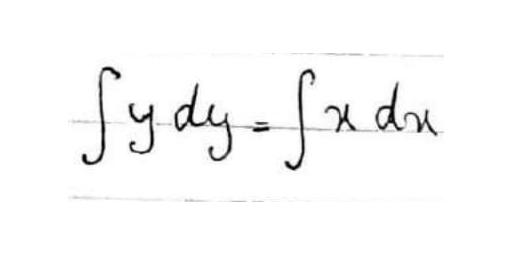 ∫ y dy = ∫ x dx